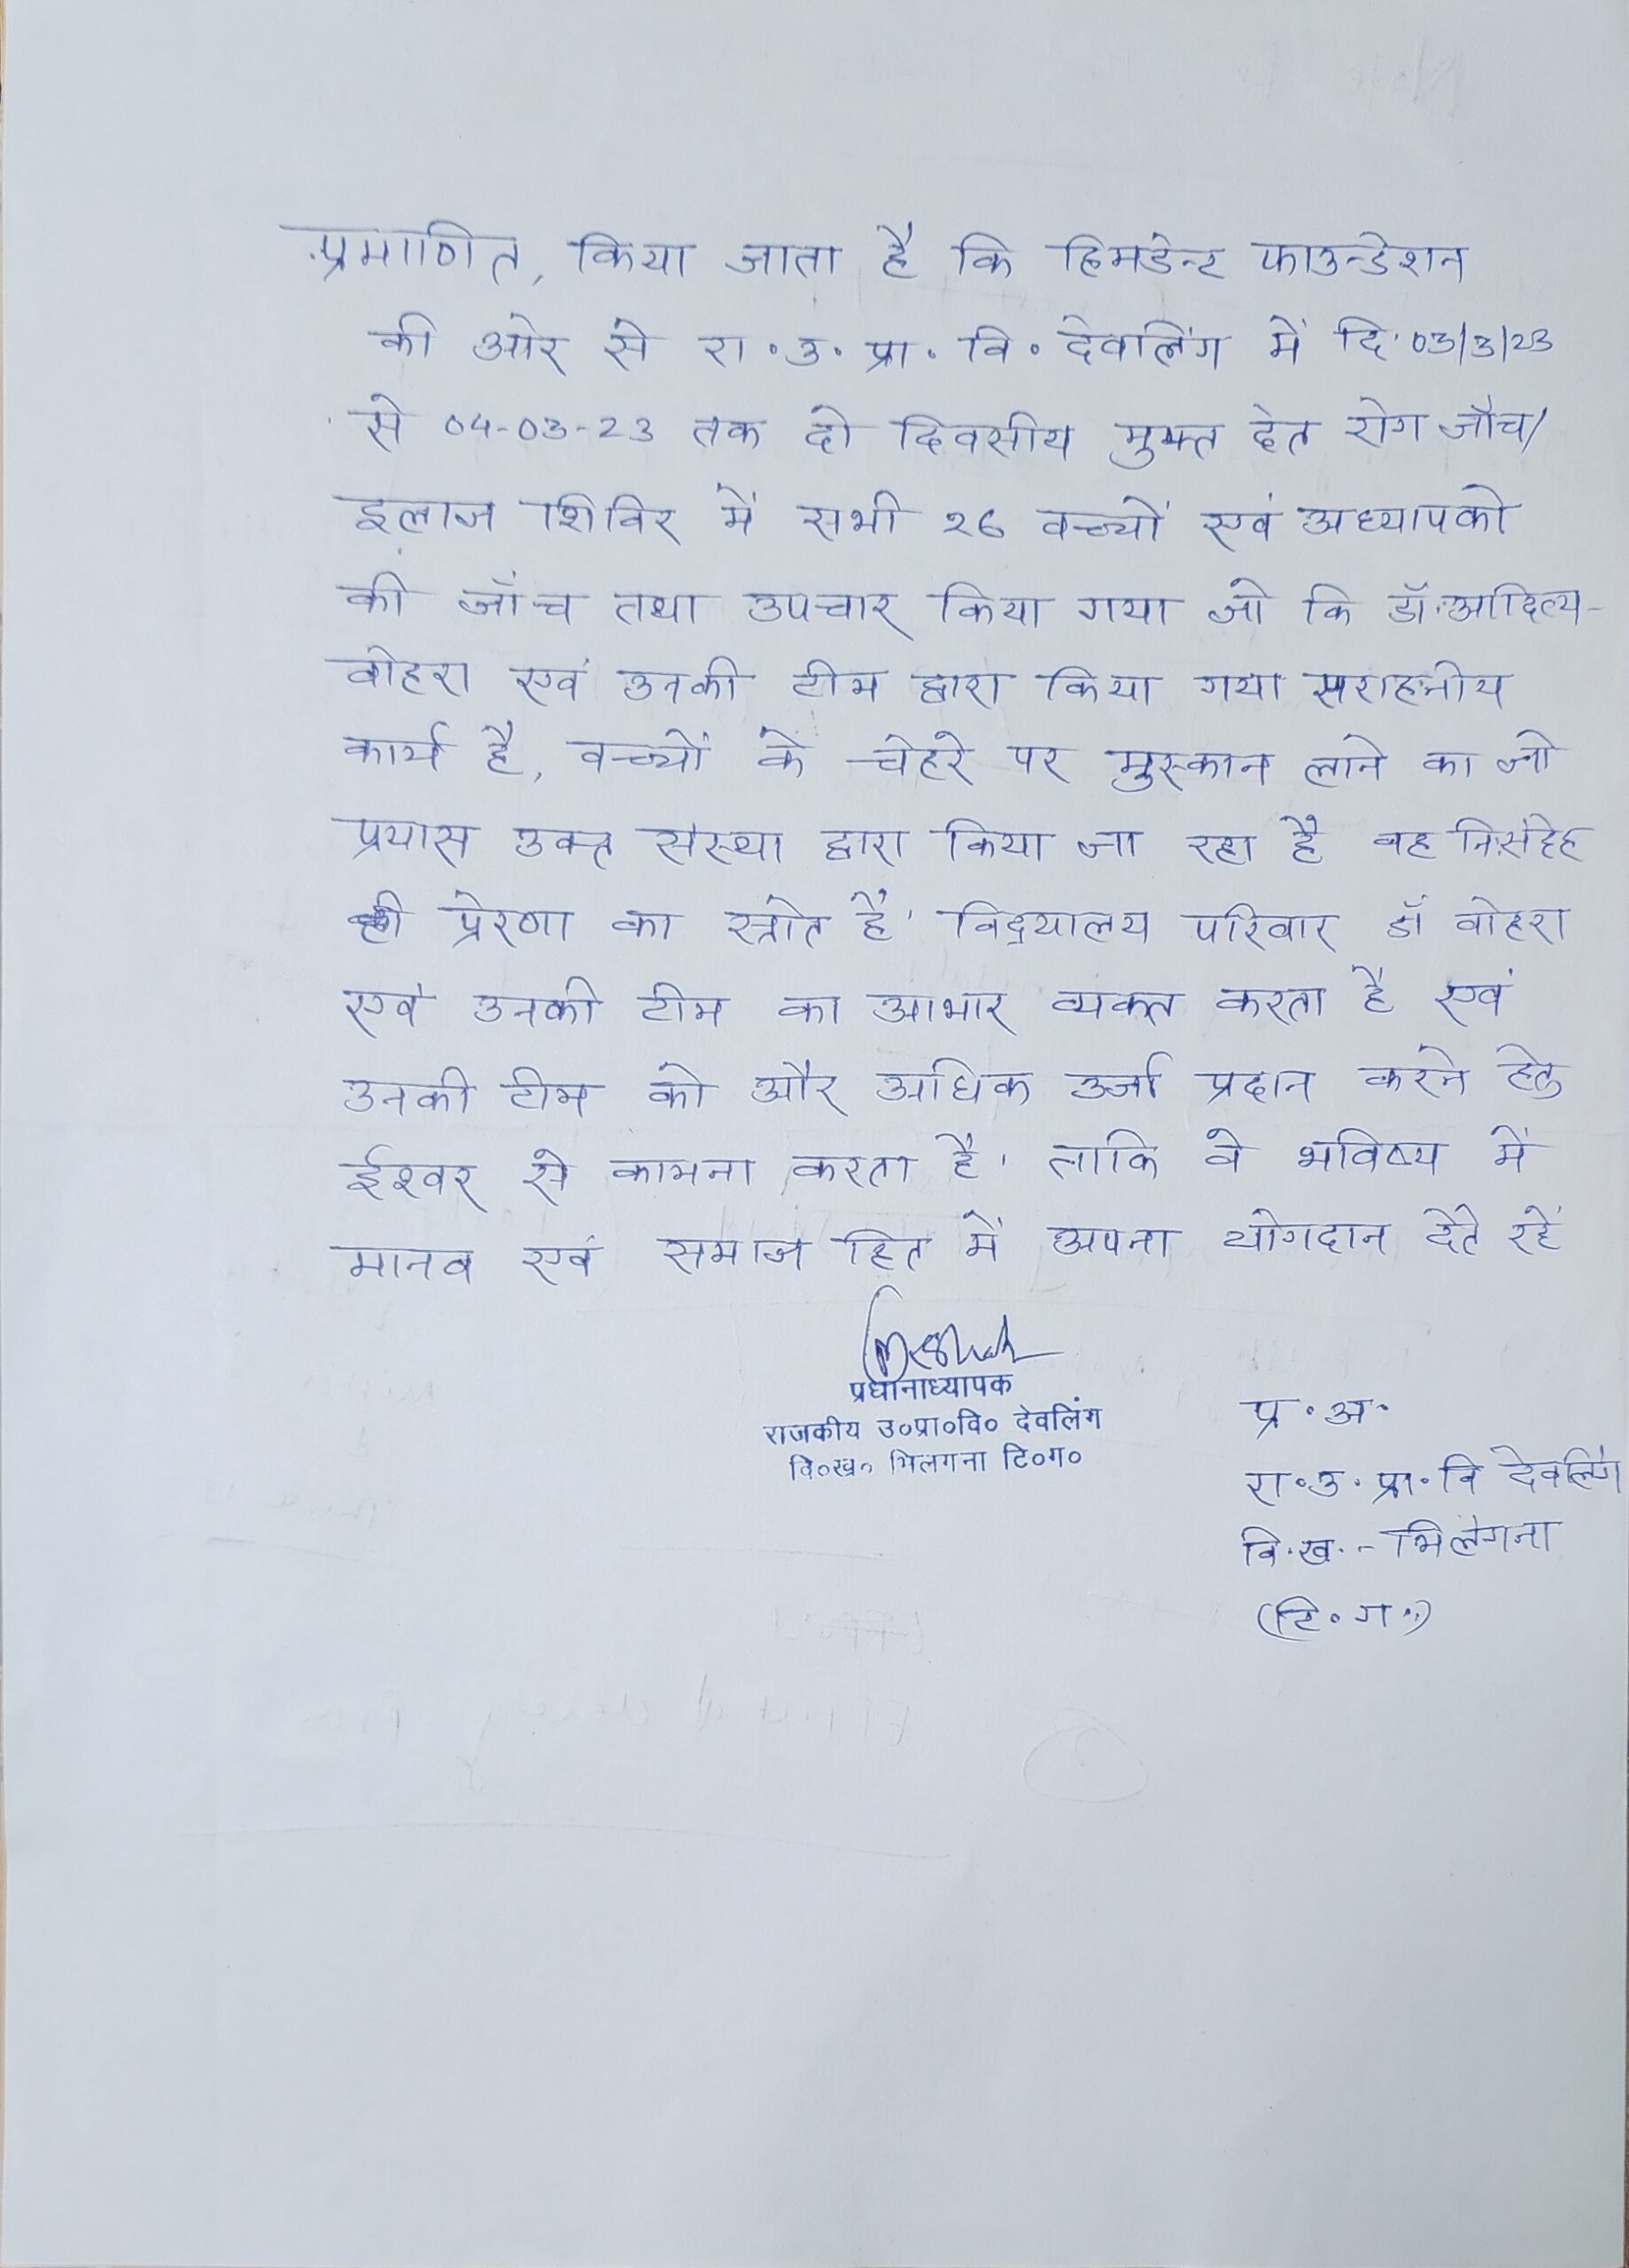 प्रमाणित, किया जाता है कि हिमडेन्ट फाउन्डेशन
की ओर से रा॰उ॰प्रा॰वि॰ देवलिंग में दि॰ 03/3/23
से 04-03-23 तक दो दिवसीय मुफ्त दंत रोग जाँच/
इलाज शिविर में सभी 26 बच्चों एवं अध्यापको
की जाँच तथा उपचार किया गया जो कि डॉ॰आदित्य-
वोहरा एवं उनकी टीम द्वारा किया गया सराहनीय
कार्य है, बच्चों के चेहरे पर मुस्कान लाने का जो
प्रयास उक्त संस्था द्वारा किया जा रहा है वह निःसंदेह
ही प्रेरणा का स्त्रोत है' विद्यालय परिवार डॉ वोहरा
एवं उनकी टीम का आभार व्यक्त करता है एवं
उनकी टीम को और अधिक उर्जा प्रदान करने हेतु
ईश्वर से कामना करता है' ताकि वे भविष्य में
मानव एवं समाज हित में अपना योगदान देते रहें
प्रधानाध्यापक
राजकीय उ०प्रा०वि० देवलिंग
वि०ख० भिलगना टि०ग०
प्र॰अ॰
रा॰उ॰प्रा॰वि देवलिंग
वि॰ख॰- भिलंगना
(टि॰ग॰)